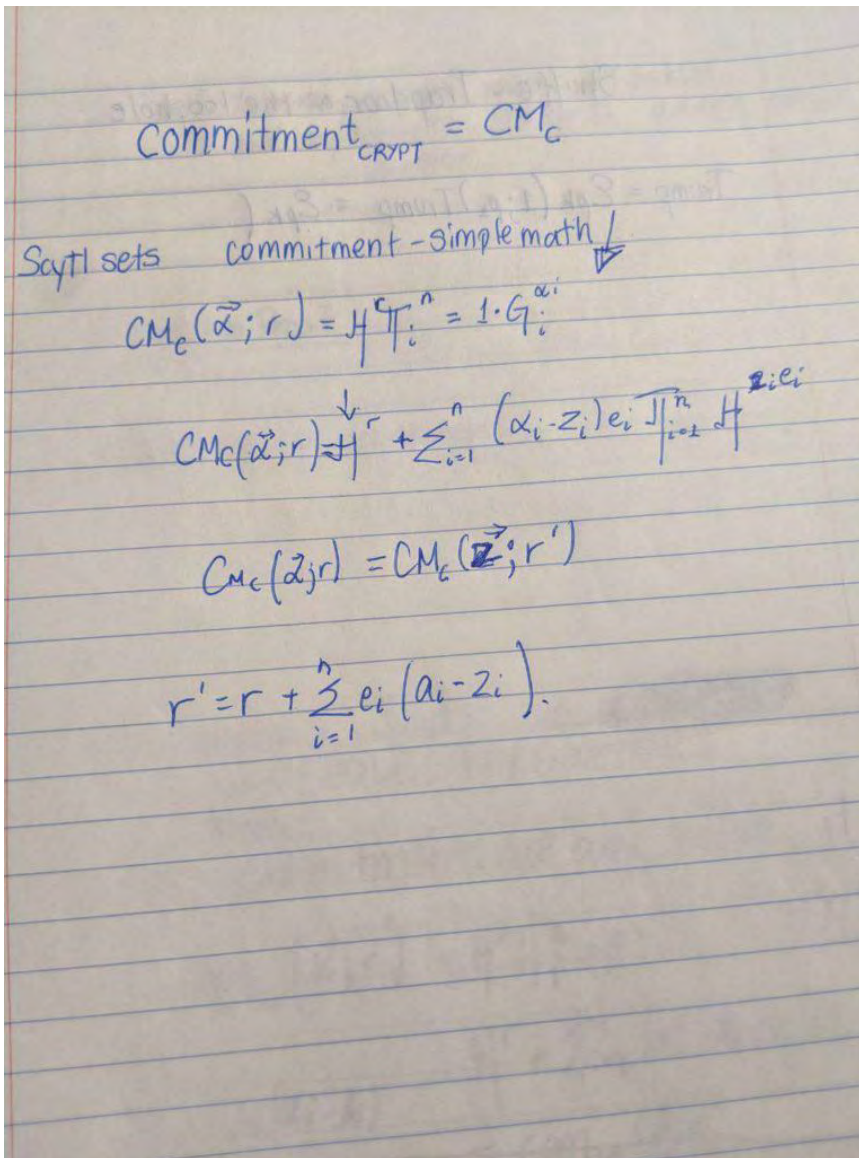 Commitment_CRYPT = CM_c
Scytl sets commitment - simple math!
CM_c(α⃗; r) = H^r π_i^n = 1·G_i^αi
CM_c(α⃗; r) = H^r + Σ_{i=1}^n (α_i - z_i) e_i π_{i=1}^n H^{z_i e_i}
CM_c(α⃗; r) = CM_c(z⃗; r')
r' = r + Σ_{i=1}^n e_i (a_i - z_i).